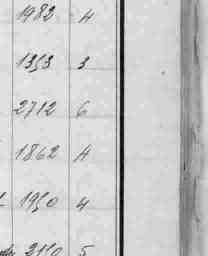 1982 4
1353 3
2712 6
1862 4
1950 4
2150 5